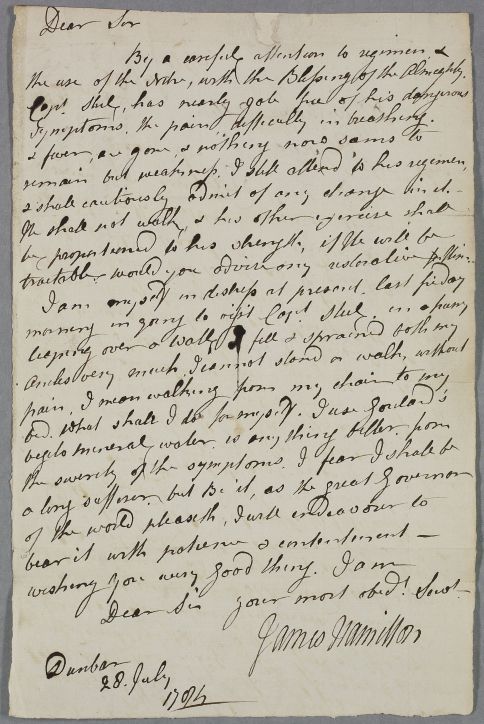 Dear Sir
By a careful attention to regimen &
the use of the Nitre, with the Blessing of the Almighty,
Capt. Stul, has nearly gote free, of his dangerous
symptoms, the pain, difficulty in breathing,
& fever, are gone, & nothing now sams to
remain but weakness, I still attend to his regimen,
& shall cautiously admit of any change in it.–
He shall not walk, & his other exercise shall
be proportioned to his strength, if He will be
tractable. would you advise any restorative
I am myself in distress at present, last friday
morning in going to visit Capt Stul, in a hurry
leaping over a wall I fell & sprained both my
ancles very much, I cannot stand or walk, without
pain, I mean walking from my chair to my
bed. What shall I do for myself. I use Goulard's
vegeto mineral water, is any thing better. from
the severity of the symptoms. I fear I shall be
a long sufferer, but Be it, as the great Governor
of the world pleaseth, I will endeavour to
bear it with patience & contentment –
wishing you every good thing. I am
Dear Sir your most obedt. Servt.
James Hamilton
Dunbar
28. July
1784